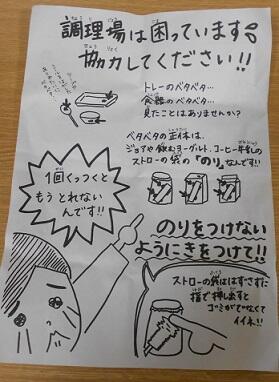 調理場は困っています
協力してください!!
トレーのベタベタ…
食器のベタベタ…
見たことはありませんか?
ベタベタの正体は、
ジョアや飲むヨーグルト、コーヒー牛乳の
ストローの袋の「のり」なんです!!
1回くっつくと
もうとれない
んです!!
のりをつけない
ようにきをつけて!!
ストローの袋ははずさずに
指で押し出すと
ゴミがでなくて
イイネ!!